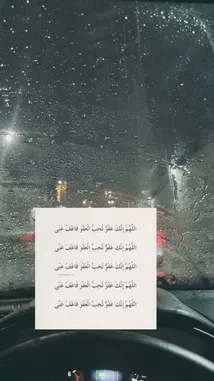 اللَّهُمَّ إِنَّكَ عَفُوٌّ تُحِبُّ الْعَفْوَ فَاعْفُ عَنِّي
اللَّهُمَّ إِنَّكَ عَفُوٌّ تُحِبُّ الْعَفْوَ فَاعْفُ عَنِّي
اللَّهُمَّ إِنَّكَ عَفُوٌّ تُحِبُّ الْعَفْوَ فَاعْفُ عَنِّي
اللَّهُمَّ إِنَّكَ عَفُوٌّ تُحِبُّ الْعَفْوَ فَاعْفُ عَنِّي
اللَّهُمَّ إِنَّكَ عَفُوٌّ تُحِبُّ الْعَفْوَ فَاعْفُ عَنِّي